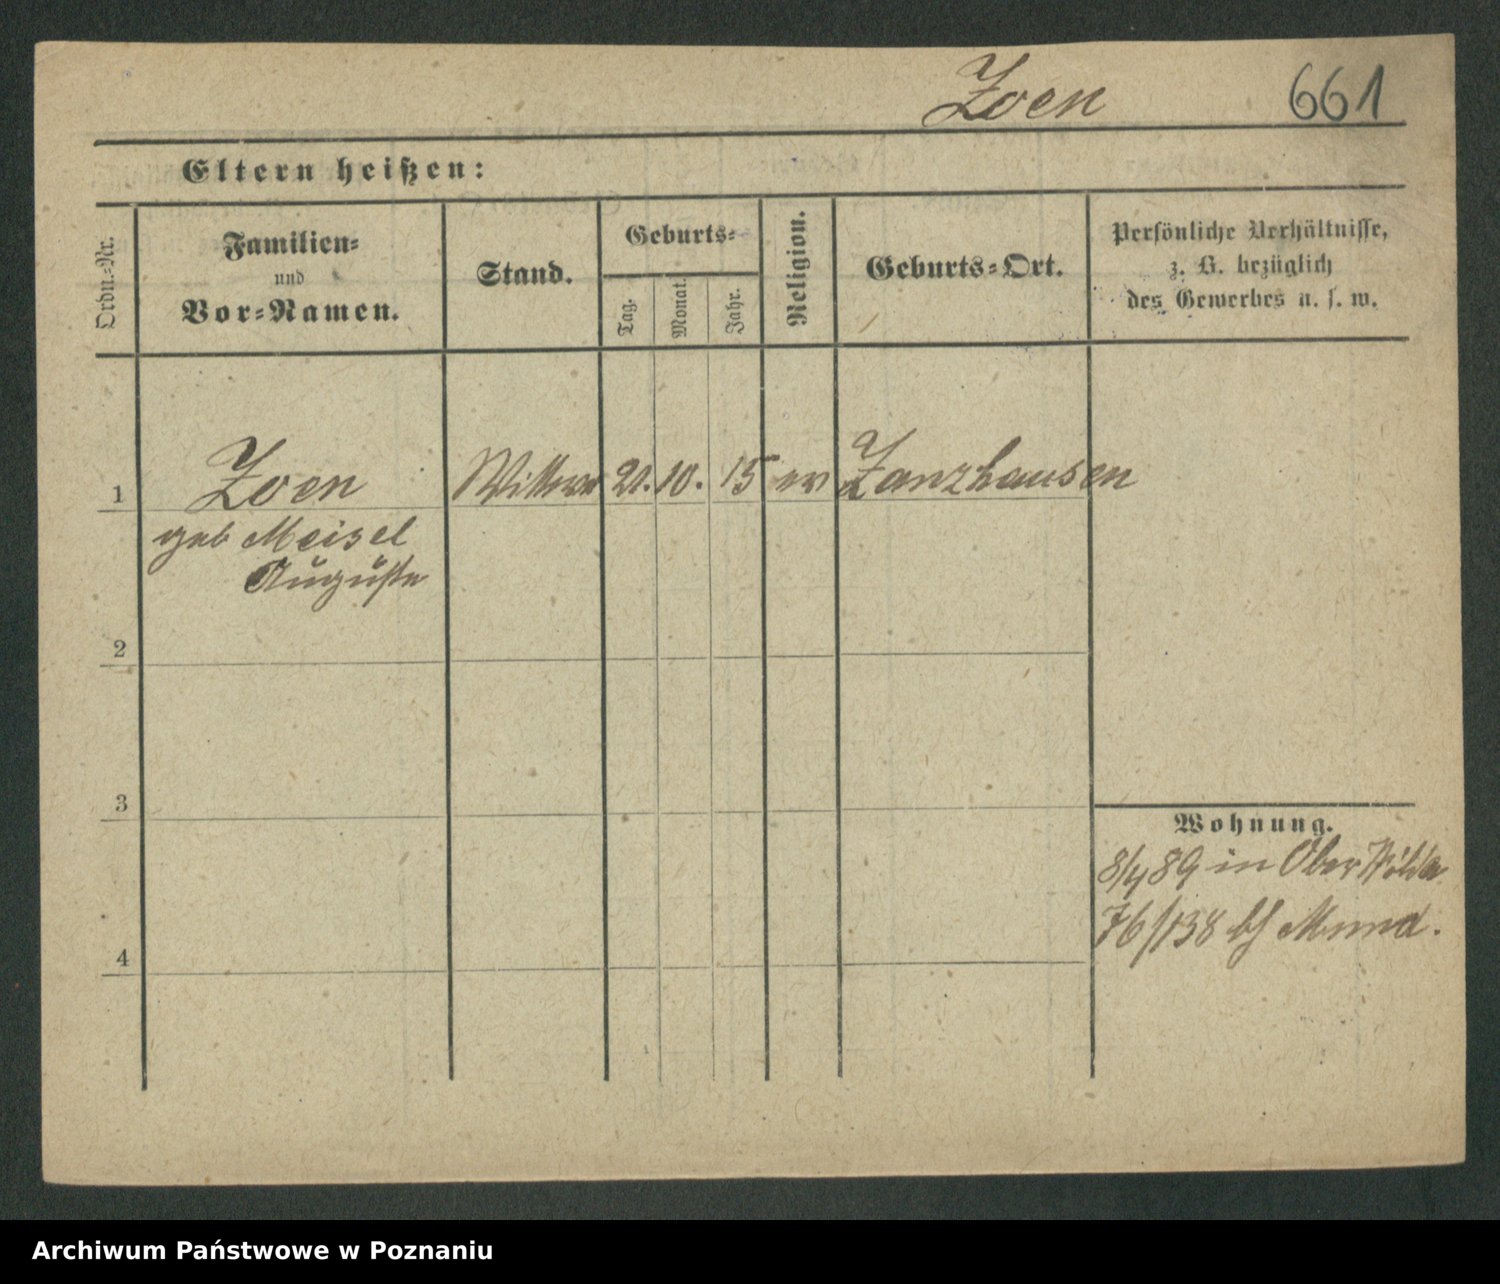 Zoen 661
Eltern heißen:
Ordn.-Nr.
Familien-
und
Vor-Namen.
Stand.
Geburts-
Tag.
Monat.
Jahr.
Religion.
Geburts-Ort.
Persönliche Verhältnisse,
z. B. bezüglich
des Gewerbes u. s. w.
1 Zoen Wittwe 21. 10. 15 ev Zanzhausen
geb Meisel
Auguste
2
3
4
Wohnung.
8/4 89 in Ober
76/138 bf Mund.
Archiwum Państwowe w Poznaniu